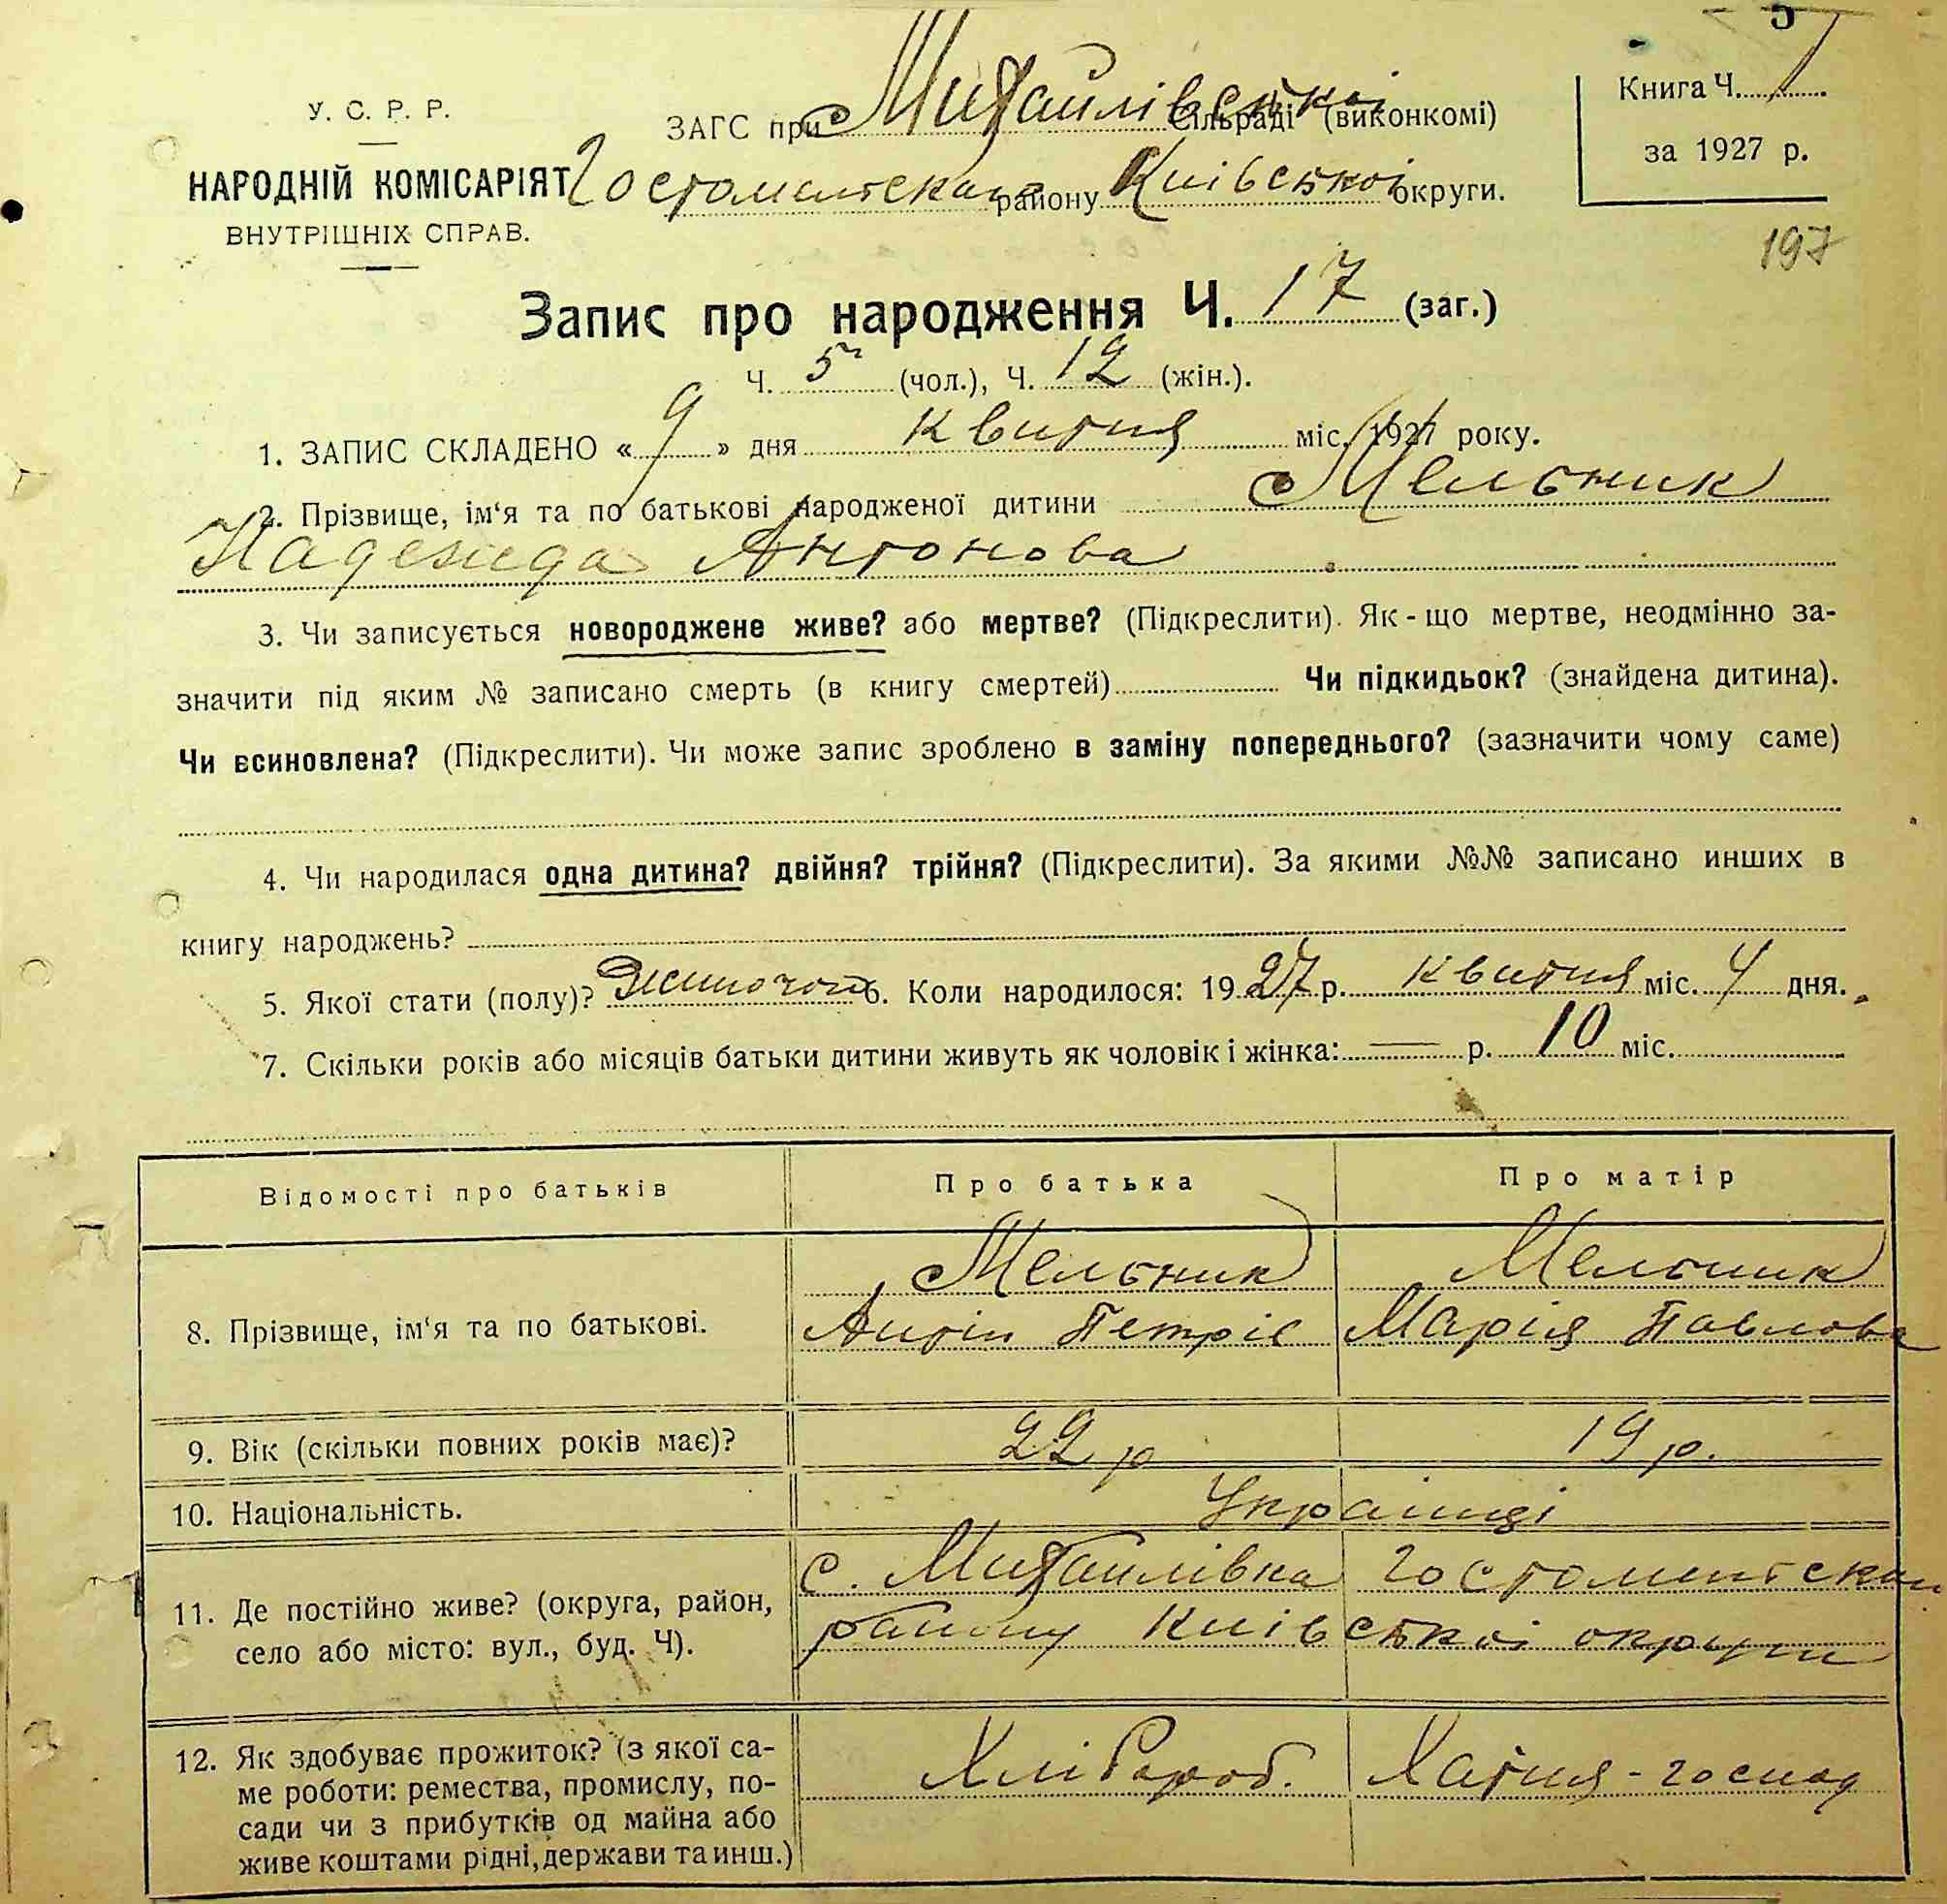 5
У. С. Р. Р.
НАРОДНІЙ КОМІСАРІЯТ
ВНУТРІШНІХ СПРАВ.
ЗАГС при Михайлівської Сільраді (виконкомі)
району Київської округи.
Книга Ч. 1
за 1927 р.
197
Запис про народження Ч. 17 (заг.)
Ч. 5 (чол.), Ч. 12 (жін.).
1. ЗАПИС СКЛАДЕНО « 9 » дня квитня міс. 1927 року.
2. Прізвище, ім‘я та по батькові народженої дитини Мельник
Надежда Антонова
3. Чи записується новороджене живе? або мертве? (Підкреслити). Як-що мертве, неодмінно за-
значити під яким № записано смерть (в книгу смертей) Чи підкидьок? (знайдена дитина).
Чи всиновлена? (Підкреслити). Чи може запис зроблено в заміну попереднього? (зазначити чому саме)
4. Чи народилася одна дитина? двійня? трійня? (Підкреслити). За якими №№ записано инших в
книгу народжень?
5. Якої стати (полу)? 6. Коли народилося: 1927 р. квитня міс. 4 дня.
7. Скільки років або місяців батьки дитини живуть як чоловік і жінка: — р. 10 міс.
Відомості про батьків Про батька Про матір
8. Прізвище, ім‘я та по батькові.
Мельник
Антін Петрів
Мельник
Марія Павлова
9. Вік (скільки повних років має)? 22 р 19 р.
10. Національність. Українці
11. Де постійно живе? (округа, район,
село або місто: вул., буд. Ч).
с. Михайлівка
району Київської округи
12. Як здобуває прожиток? (з якої са-
ме роботи: ремества, промислу, по-
сади чи з прибутків од майна або
живе коштами рідні, держави та инш.)
Хлібороб. Хатня-господ